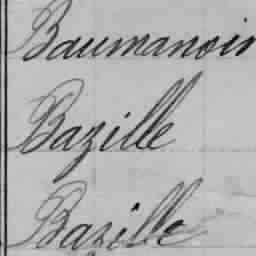 Baumanoir
Bazille
Bazille